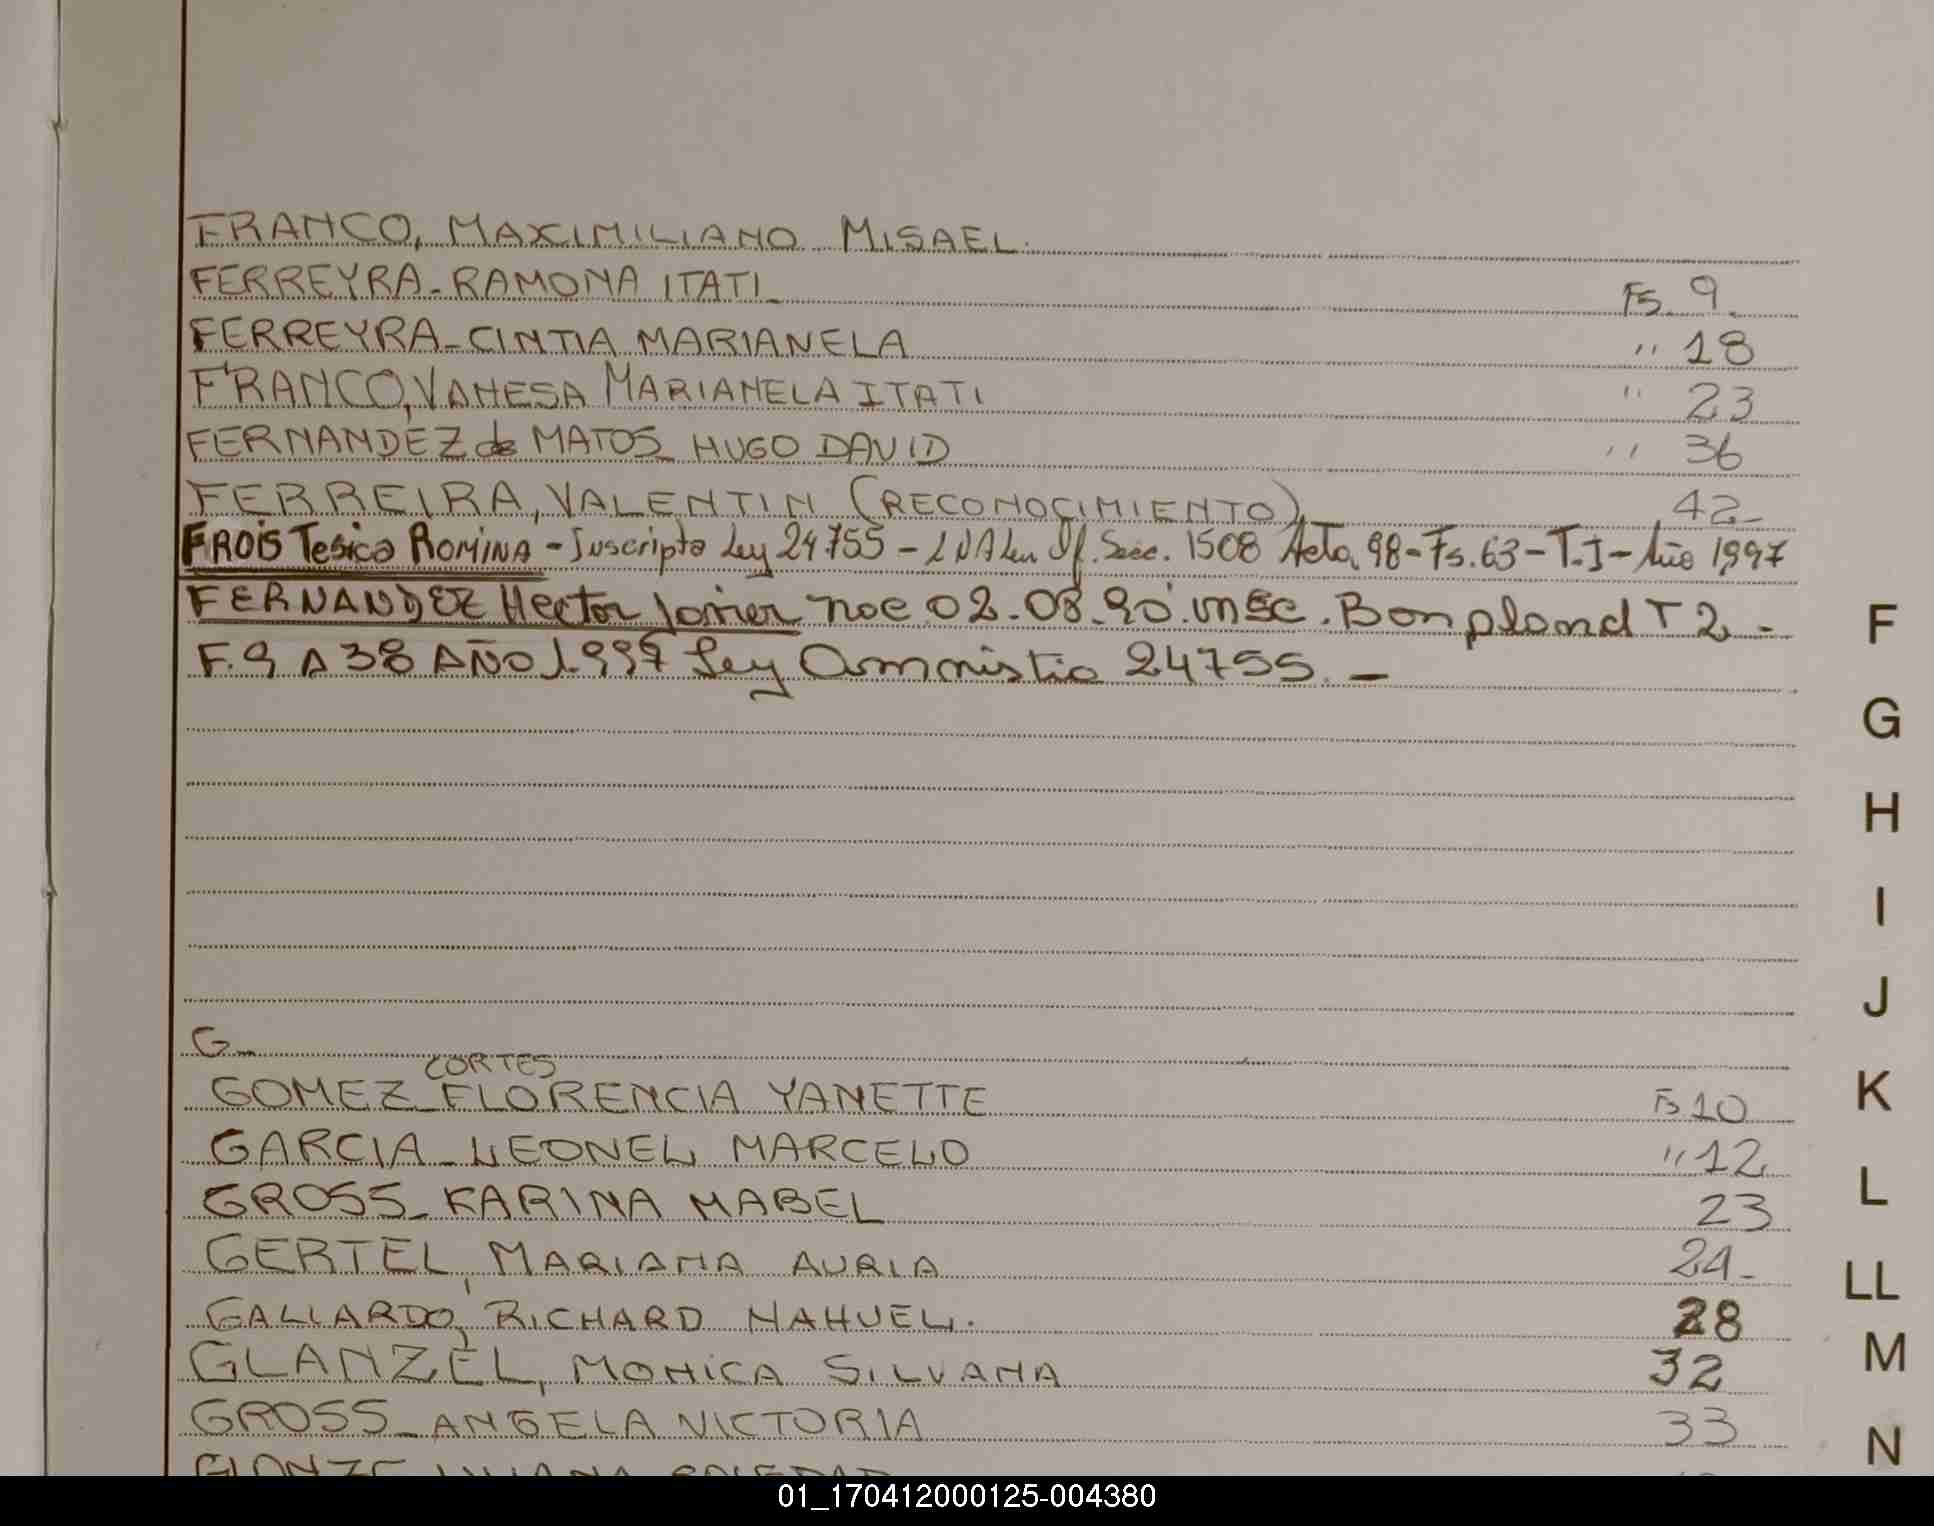 FRANCO, MAXIMILIANO MISAEL.
FERREYRA - RAMONA ITATI Fs. 9
FERREYRA - CINTIA MARIANELA " 18
FRANCO, VANESA MARIANELA ITATI " 23
FERNANDEZ de MATOS HUGO DAVID " 36
FERREIRA, VALENTIN (RECONOCIMIENTO) 42-
FROIS Tesica ROMINA - Inscripta Ley 24755 - Of. Secc. 1508 Acta 98 - Fs. 63 - T. I - Año 1997
FERNANDEZ Hector Javier nac 02.08.90 insc. Bonpland T 2 -
F. 9 A 38 AÑO 1997 Ley Amnistia 24755. -
F
G
H
I
J
G-
CORTES
GOMEZ FLORENCIA YANETTE Fs 10
K
GARCIA - LEONEL MARCELO " 12
GROSS - KARINA MABEL 23
L
GERTEL, MARIANA AURIA 24-
LL
GALLARDO, RICHARD NAHUEL. 28
GLANZEL, MONICA SILVANA 32
M
GROSS - ANGELA VICTORIA 33
N
01_170412000125-004380